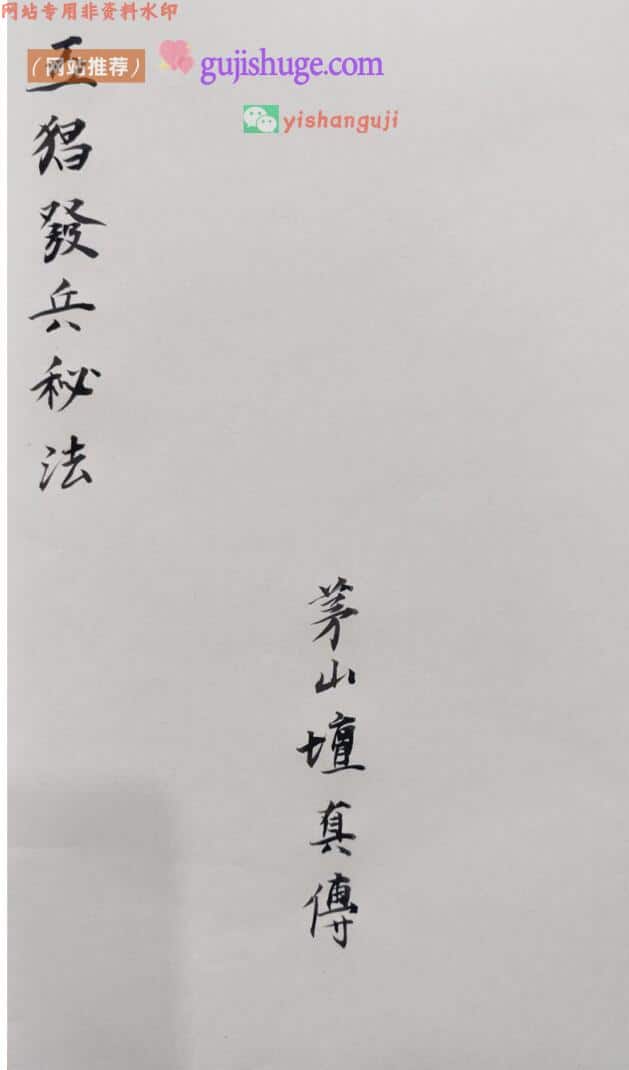 网站专用非资料水印
（网站推荐）
gujishuge.com
yishanguji
五猖發兵秘法
茅山壇真傳